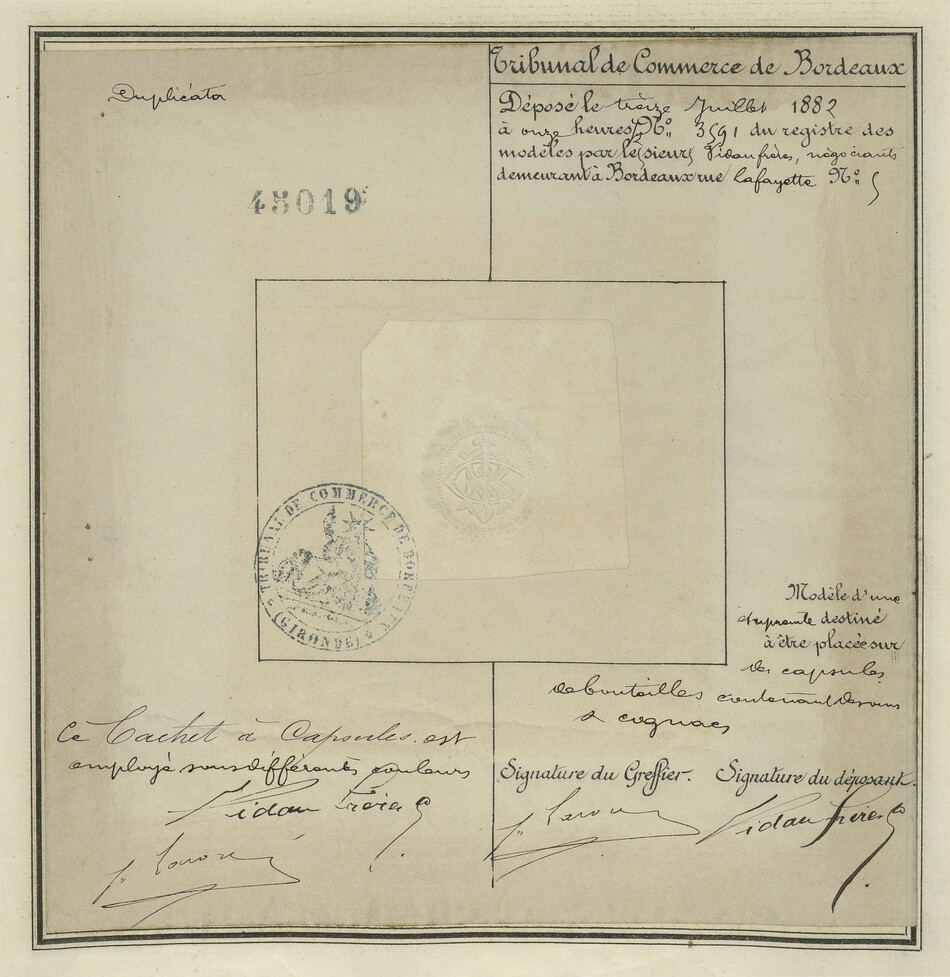 Duplicata
45019
Tribunal de Commerce de Bordeaux
Déposé le treize Juillet 1882
à onze heures, N° 3591 du registre des
modèles par le sieurs Vidau frères, négociants
demeurant à Bordeaux rue Lafayette N° 5
TRIBUNAL DE COMMERCE DE BORDEAUX
(GIRONDE)
Modèle d'une
empreinte destiné
à être placée sur
des capsules
de bouteilles contenant des vins
& cognacs
Ce Cachet à Capsules est
employé sous différentes couleurs
Vidau frères
Signature du Greffier.
Signature du déposant.
Vidau frères